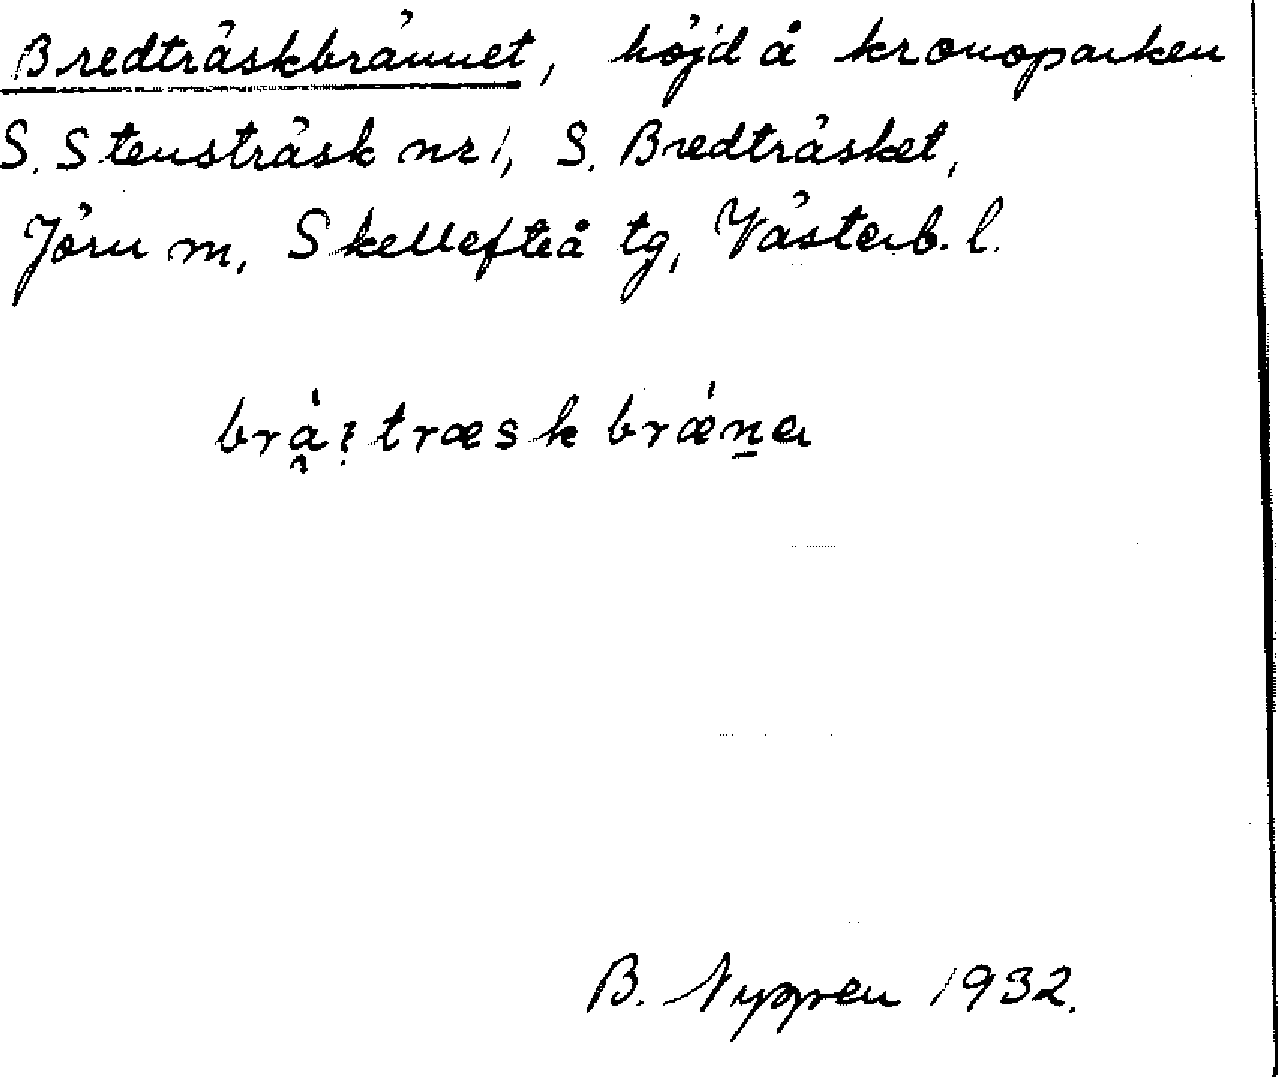 Bredträskbrännet, höjd å kronoparken
S. Stensträsk nr 1, S. Bredträsket,
Jörn m, Skellefteå tg, Västerb. l.
B. Nygren 1932.